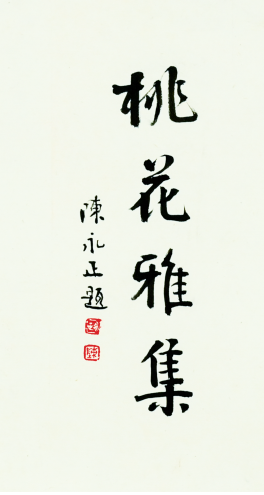 桃花雅集
陳永正題